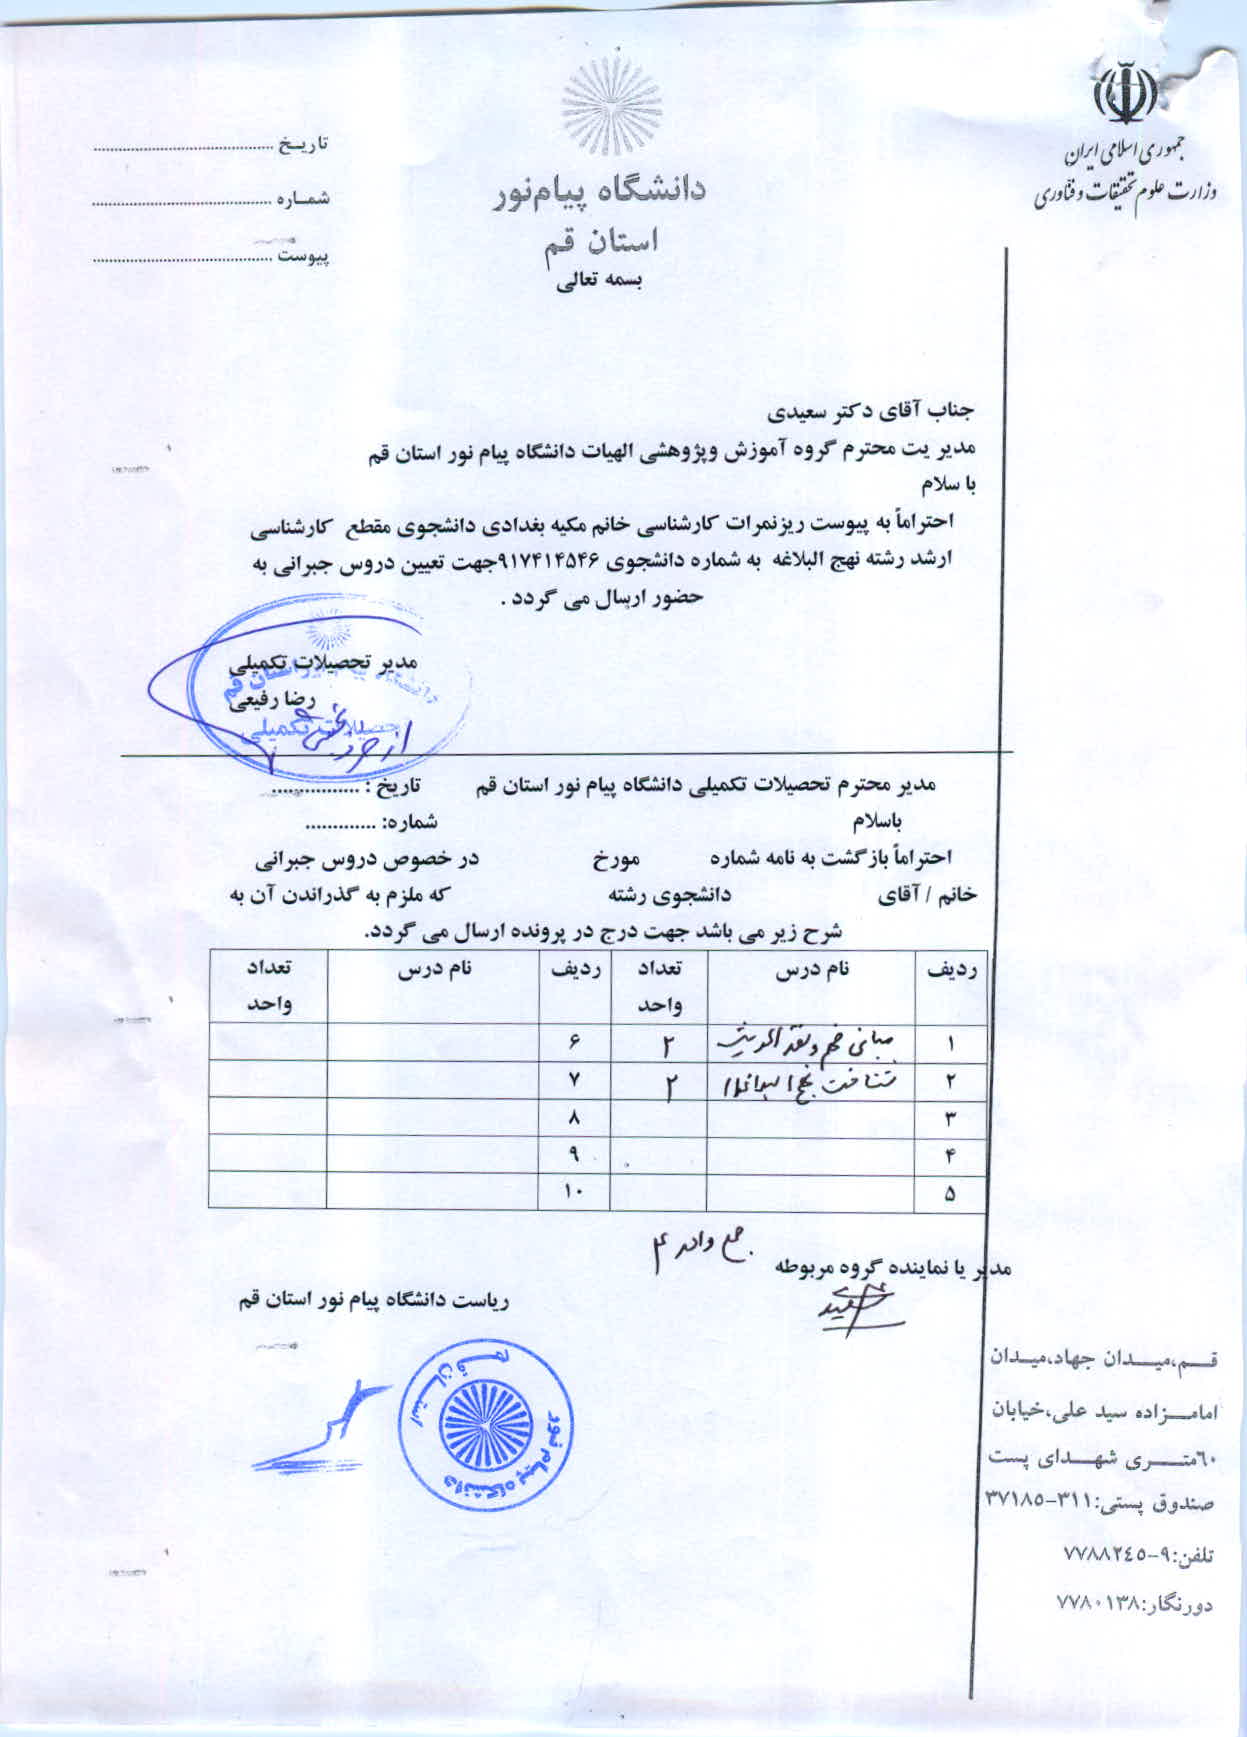 جمهوری اسلامی ایران
وزارت علوم تحقیقات و فناوری
دانشگاه پیام‌نور
استان قم
بسمه تعالی
تاریخ ........................................
شماره ........................................
پیوست ........................................
جناب آقای دکتر سعیدی
مدیر یت محترم گروه آموزش وپژوهشی الهیات دانشگاه پیام نور استان قم
با سلام
احتراماً به پیوست ریزنمرات کارشناسی خانم مکیه بغدادی دانشجوی مقطع کارشناسی
ارشد رشته نهج البلاغه به شماره دانشجوی ۹۱۷۴۱۴۵۴۶جهت تعیین دروس جبرانی به
حضور ارسال می گردد .
مدیر تحصیلات تکمیلی
رضا رفیعی
دانشگاه پیام نور استان قم
تحصیلات تکمیلی
مدیر محترم تحصیلات تکمیلی دانشگاه پیام نور استان قم تاریخ : ................
باسلام شماره: .............
احتراماً بازگشت به نامه شماره مورخ در خصوص دروس جبرانی
خانم / آقای دانشجوی رشته که ملزم به گذراندن آن به
شرح زیر می باشد جهت درج در پرونده ارسال می گردد.
ردیف نام درس تعداد واحد ردیف نام درس تعداد واحد
۱ مبانی فهم و نقد الحدیث ۲ ۶
۲ شناخت نهج البلاغه ۲ ۷
۳ ۸
۴ ۹
۵ ۱۰
جمع واحد ۴
مدیر یا نماینده گروه مربوطه
ریاست دانشگاه پیام نور استان قم
دانشگاه پیام نور
استان قم
قم،میدان جهاد،میدان
امامزاده سید علی،خیابان
٦٠متری شهدای پست
صندوق پستی:۳۱۱-۳۷۱۸۵
تلفن:۹-۷۷۸۸۲٤٥
دورنگار:۷۷۸۰۱۳۸